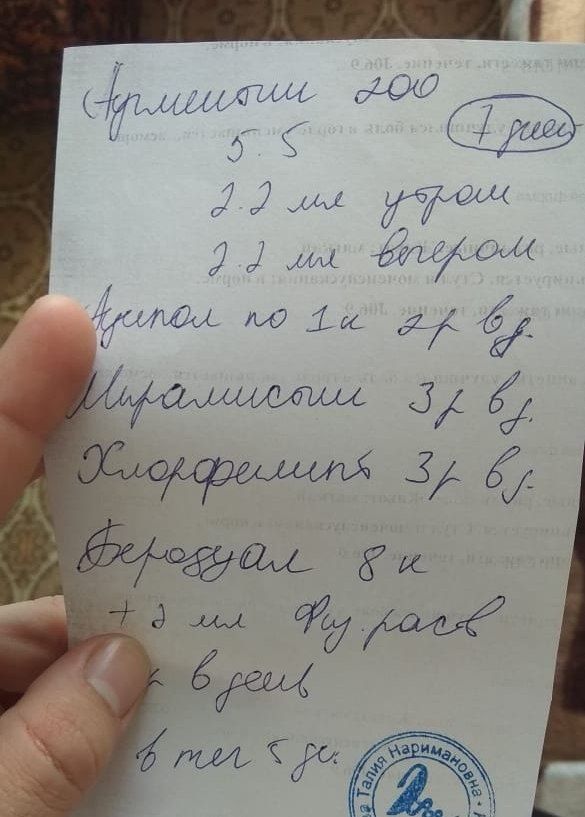 Аугментин 200
7 дней
5.5
2.2 мл утром
2.2 мл вечером
Аципол по 1к 2р в д.
Мирамистин 3р в д.
Хлорофиллипт 3р в д.
Беродуал 8 к
+ 2 мл Физ. раств
в день
в теч 5 дн.
Талия Наримановна